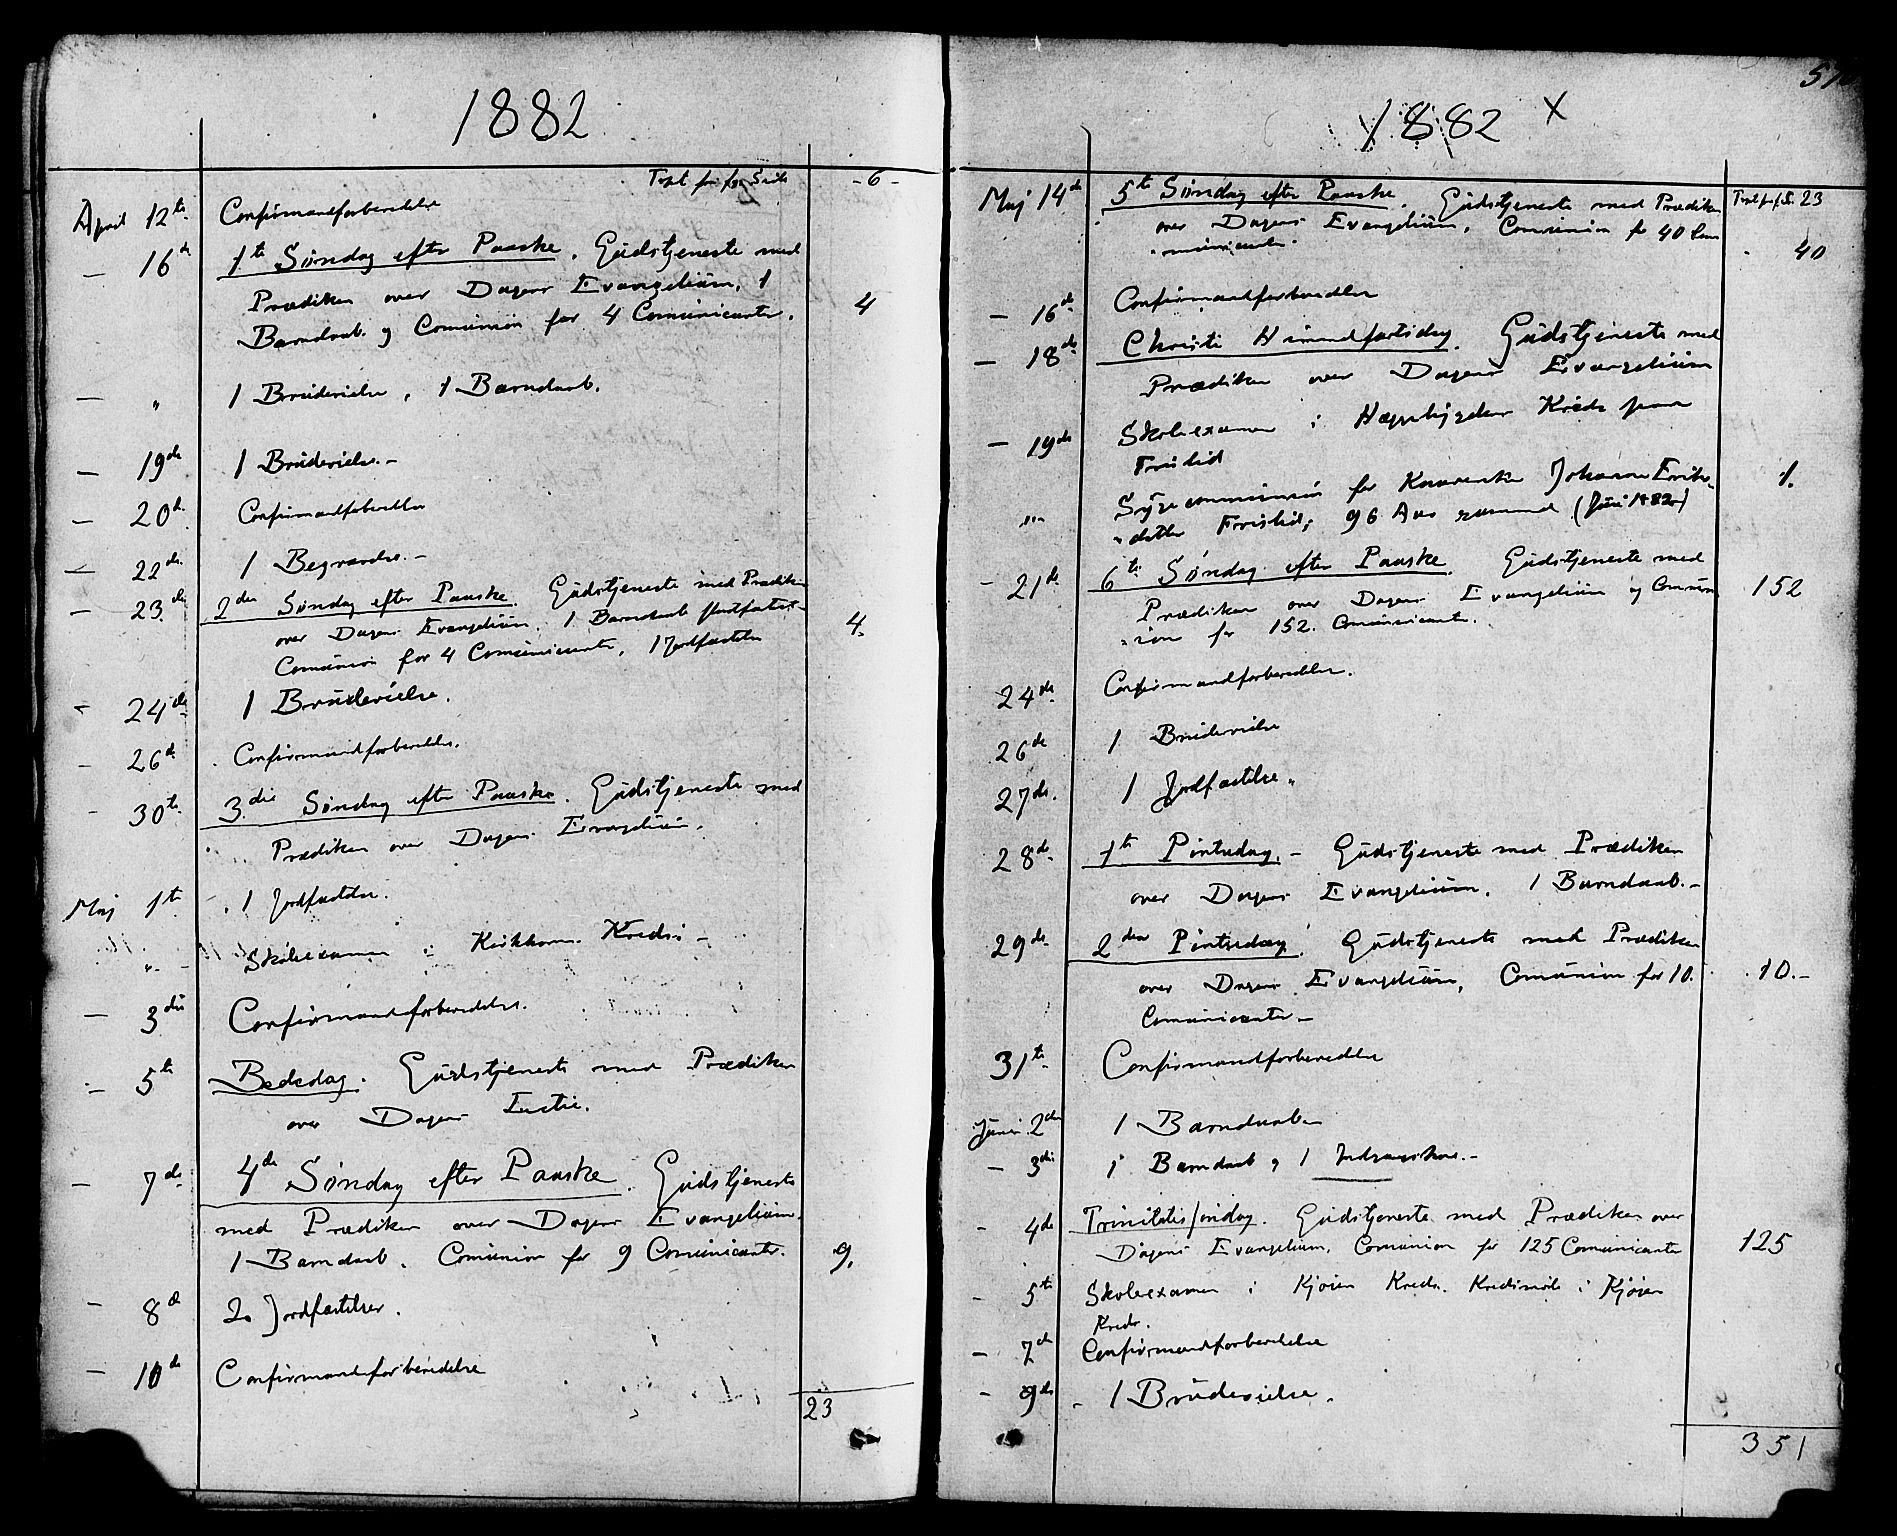 1882
Trpt fra for. Side -6-
April 12te Confirmandforberedelse
— 16de 1ste Søndag efter Paaske. Gudstjeneste med
Prædiken over Dagens Evangelium, 1
Barndaab og Comunion for 4 Comunicanter. 4
— " 1 Brudevielse, 1 Barndaab.
— 19de 1 Brudevielse. –
— 20de Confirmandforberedelse
— 22de 1 Begravelse. –
— 23de 2den Søndag efter Paaske. Gudstjeneste med Prædiken
over Dagens Evangelium. 1 Barndaab
Comunion for 4 Comunicanter, 1 Jordfæstelse 4.
- 24de 1 Brudevielse.
- 26de Confirmandforberedelse.
- 30te 3die Søndag efter Paaske. Gudstjeneste med
Prædiken over Dagens Evangelium.
Maj 1ste 1 Jordfæstelse.
" - Skoleexamen i Kirkhorn Kreds –
— 3die Confirmandforberedelse.
- 5te Bededag. Gudstjeneste med Prædiken
over Dagens Textie.
— 7de 4de Søndag efter Paaske. Gudstjeneste
med Prædiken over Dagens Evangelium.
1 Barndaab. Comunion for 9 Comunicanter. 9.
— 8de 2 Jordfæstelser.
— 10de Confirmandforberedelse
23
1882 X
Maj 14de 5te Søndag efter Paaske. Gudstjeneste med Prædiken Trpt fr. f. S. 23
over Dagens Evangelium, Comunion for 40 Com
municanter. 40
— 16de Confirmandforberedelse
— 18de Christi Himmelfartsdag. Gudstjeneste med
Prædiken over Dagens Evangelium
— 19de Skoleexamen i Kreds paa
Frislid
" Sygecommunion for Johanne Eriks-
datter Frislid, 96 Aar gammel. (Juni 1882) 1.
- 21de 6te Søndag efter Paaske. Gudstjeneste med
Prædiken over Dagens Evangelium og Comun
ion for 152 Comunicanter. 152
24de Confirmandforberedelse.
26de 1 Brudevielse
27de. 1 Jordfæstelse.
28de 1ste Pintsedag. – Gudstjeneste med Prædiken
over Dagens Evangelium. 1 Barndaab. –
29de 2den Pintsedag. Gudstjeneste med Prædiken
over Dagens Evangelium, Comunion for 10. 10. –
Comunicanter –
31te Confirmandforberedelse
Juni 2den 1 Barndaab
— 3die 1 Barndaab, 1
- 4de Trinitatissøndag. Gudstjeneste med Prædiken over
Dagens Evangelium. Comunion for 125 Comunicanter 125
- 5te Skoleexamen i Kjøsen Kreds. Kredsmøde i Kjøsen
Kreds.
— 7de Confirmandforberedelse
- 9de 1 Brudevielse.
351